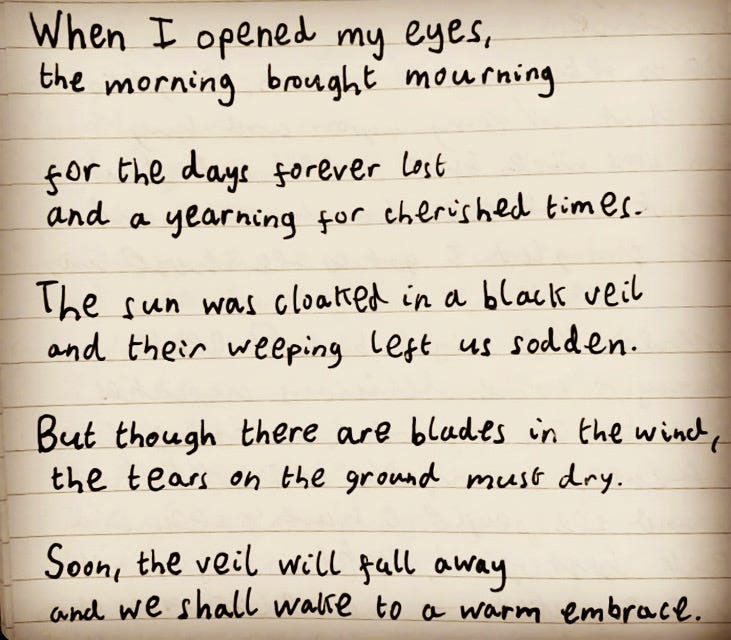 When I opened my eyes,
the morning brought mourning
for the days forever lost
and a yearning for cherished times.
The sun was cloaked in a black veil
and their weeping left us sodden.
But though there are blades in the wind,
the tears on the ground must dry.
Soon, the veil will fall away
and we shall wake to a warm embrace.